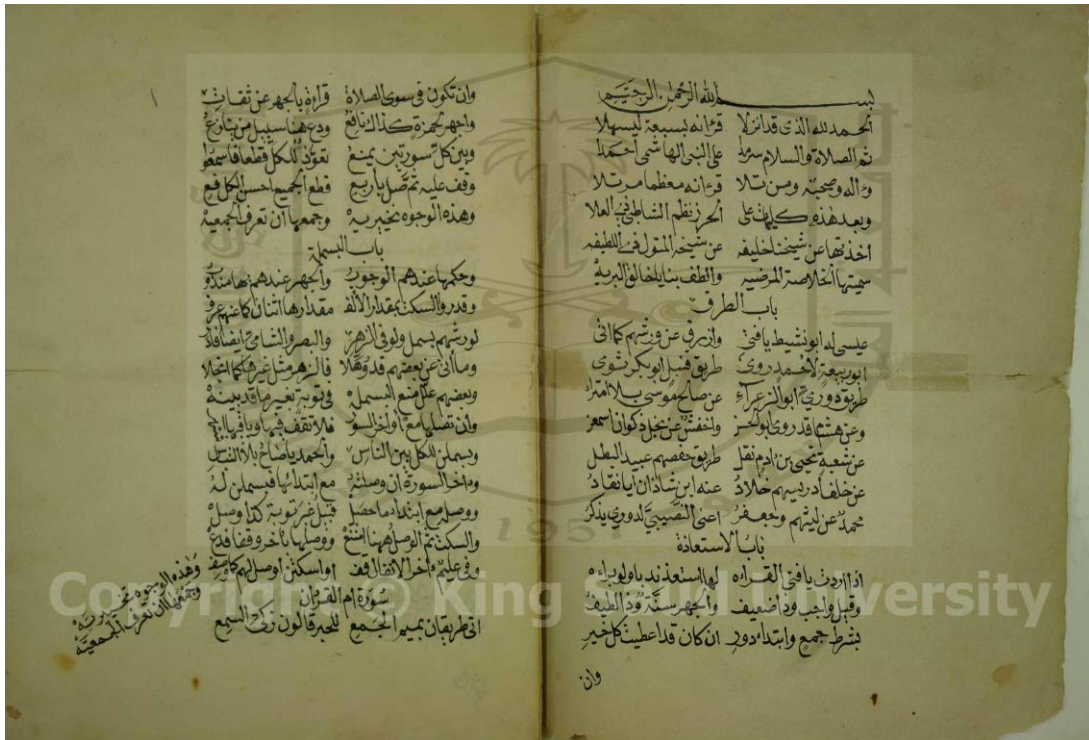 بسم الله الرحمن الرحيم
الحمد لله الذى قد انزلا قرانه بسبعة ليسهلا
ثم الصلاة والسلام سرمدا على النبى الهاشمى احمدا
واله وصحبه ومن تلا قرانه معظما مرتلا
وبعد هذه كلمات على الحرز نظم الشاطبى فى العلا
اخذتها عن شيخنا خليفه عن شيخه المتول فى اللطيفه
سميتها الخلاصة المرضيه والطف بنا يا خالق البريه
باب الطرق
عيسى له ابو نشيط يا فتى وازرق عن ورشهم كما اتى
ابو ربيعة لاحمد روى طريق قنبل ابو بكر
طريق دورى ابو الزعراء عن صالح موسى بلا امتراء
وعن هشام قد روى ابو الحسن واخفش عن نجل ذكوان
عن شعبة يحيى بن ادم نقل طريق حفصهم عبيد البطل
عن خلف ادريسهم خلاد عنه ابن شاذان ايا نقاد
محمد عن ليثهم وجعفر اعنى النصيبى لدورى يذكر
باب الاستعاذة
اذا اردت يا فتى القراءه لها استعذ ندبا ولو براءه
وقيل واجب وذا ضعيف والجهر سنة وذ الطيف
بشرط جمع وابتداء دور ان كان قد اعطيت كل خير
وان
وان تكون فى سوى الصلاة قراءة بالجهر عن ثقات
واجهر لحمزة كذاك نافع ودع هنا سبيل من ينازع
وبين كل سورتين يمنع تعوذ للكل قطعا فاسمعوا
وقف عليه ثم صل باربع قطع الجميع احسن الكل فع
وهذه الوجوه تخييريه وجمعها ان تعرف الجمعيه
باب البسملة
وحكمها عندهم الوجوب والجهر عندهم بها مندوب
وقدروا السكت بمقدار الالف مقدارها اثنان كما عنهم عرف
لورشهم بسمل ولو فى الزهر والبصر والشامى ايضا فادر
وما اتى عن بعضهم قد وهلا فالزهر مثل غيرها كما انجلا
وبعضهم علل منع البسمله فى توبة بغير ما قد بينه
وان تصلها مع اواخر السور فلا تقف فيها
وبسملن للكل بين الناس والحمد يا صاح بلا التباس
واخر السورة ان وصلته مع ابتدائها فبسملن له
ووصل مع ابتداء ما حصل قبيل غير توبة كذا وصل
والسكت ثم الوصل ههنا امتنع ووصلها باخر وقفا فدع
وفى عليم اخر الانفال قف او اسكتن او صل لهم كما وصف
سورة ام القران
اتى طريقان بميم الجمع للحبر قالون زكى السمع
وهذه الوجوه تخييريه
وجمعها ان تعرف الجمعيه
Copyright © King Saud University
1957